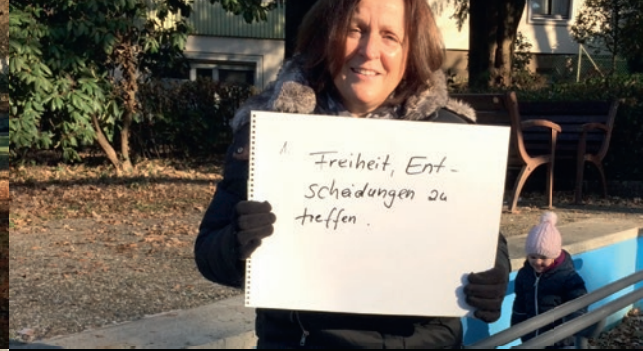 1. Freiheit, Ent-
scheidungen zu
treffen.